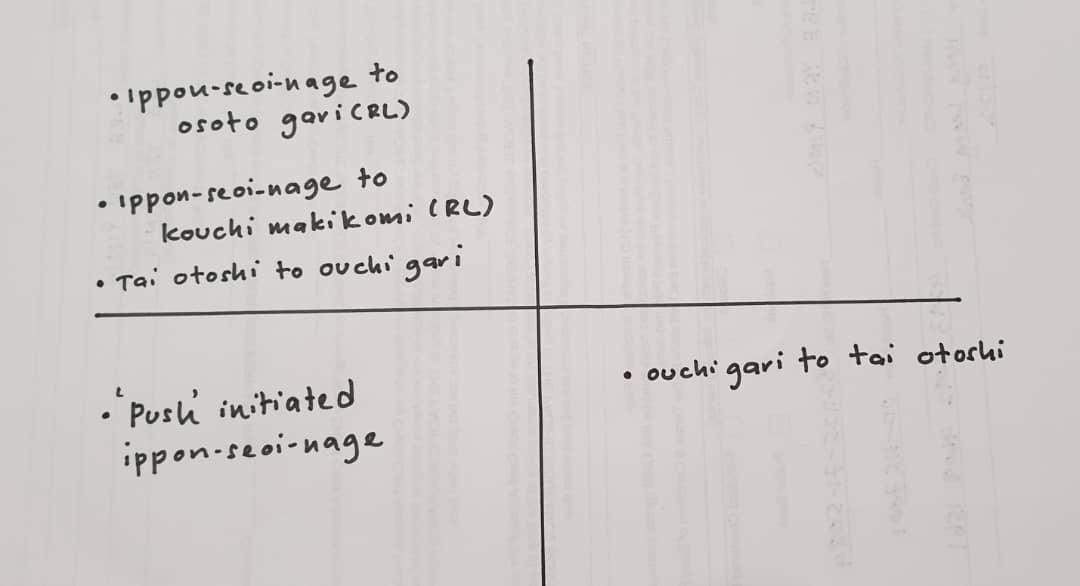 • Ippon-seoi-nage to
osoto gari (RL)
• Ippon-seoi-nage to
kouchi makikomi (RL)
• Tai otoshi to ouchi gari
• 'Push' initiated
ippon-seoi-nage
• ouchi gari to tai otoshi